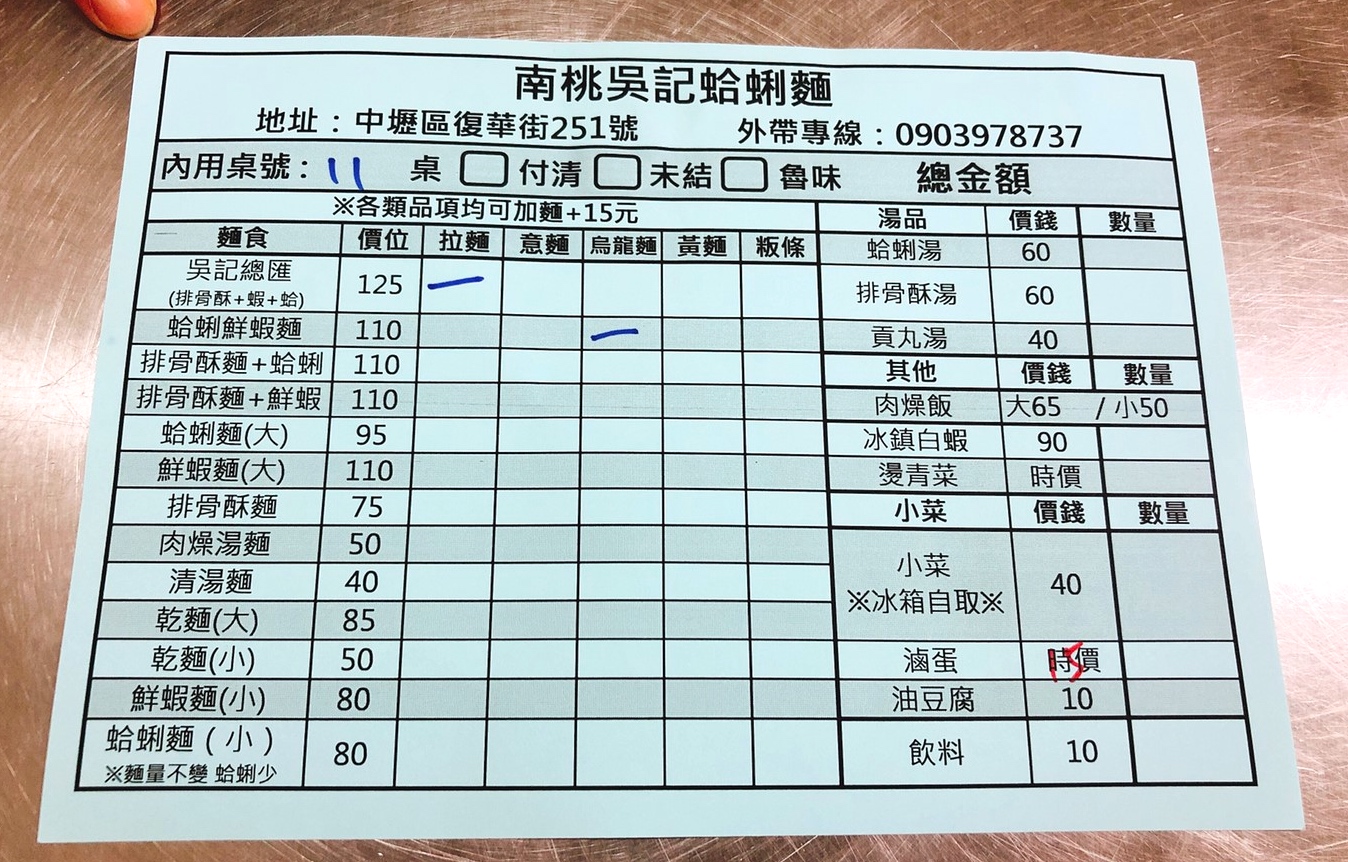 南桃吳記蛤蜊麵
地址：中壢區復華街251號 外帶專線：0903978737
內用桌號： 11 桌 付清 未結 魯味 總金額
※各類品項均可加麵+15元
麵食 價位 拉麵 意麵 烏龍麵 黃麵 粄條
吳記總匯 125 一
(排骨酥+蝦+蛤)
蛤蜊鮮蝦麵 110 一
排骨酥麵+蛤蜊 110
排骨酥麵+鮮蝦 110
蛤蜊麵(大) 95
鮮蝦麵(大) 110
排骨酥麵 75
肉燥湯麵 50
清湯麵 40
乾麵(大) 85
乾麵(小) 50
鮮蝦麵(小) 80
蛤蜊麵（小） 80
※麵量不變 蛤蜊少
湯品 價錢 數量
蛤蜊湯 60
排骨酥湯 60
貢丸湯 40
其他 價錢 數量
肉燥飯 大65 / 小50
冰鎮白蝦 90
燙青菜 時價
小菜 價錢 數量
小菜 40
※冰箱自取※
滷蛋 時價 15
油豆腐 10
飲料 10